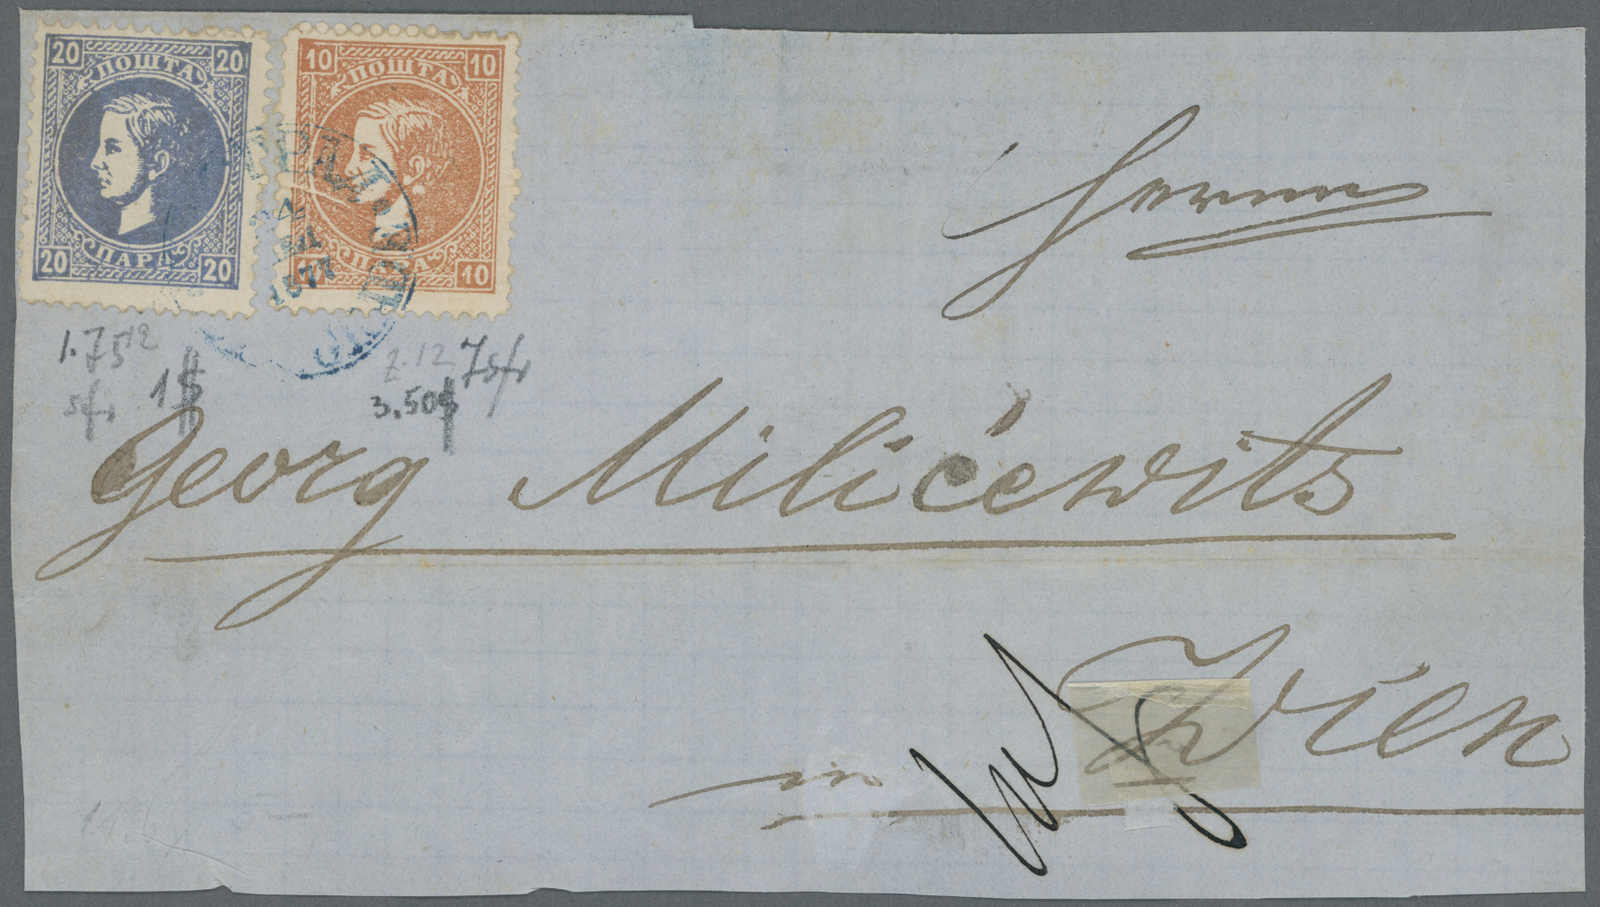 20 20 10 10
ПОШТА ПОШТА
ПАРА
20 20 10
1877
1.75 12 z.12 7sfr
sfr 1$ 3.50$
Herrn
Georg Milićewits
in Wien